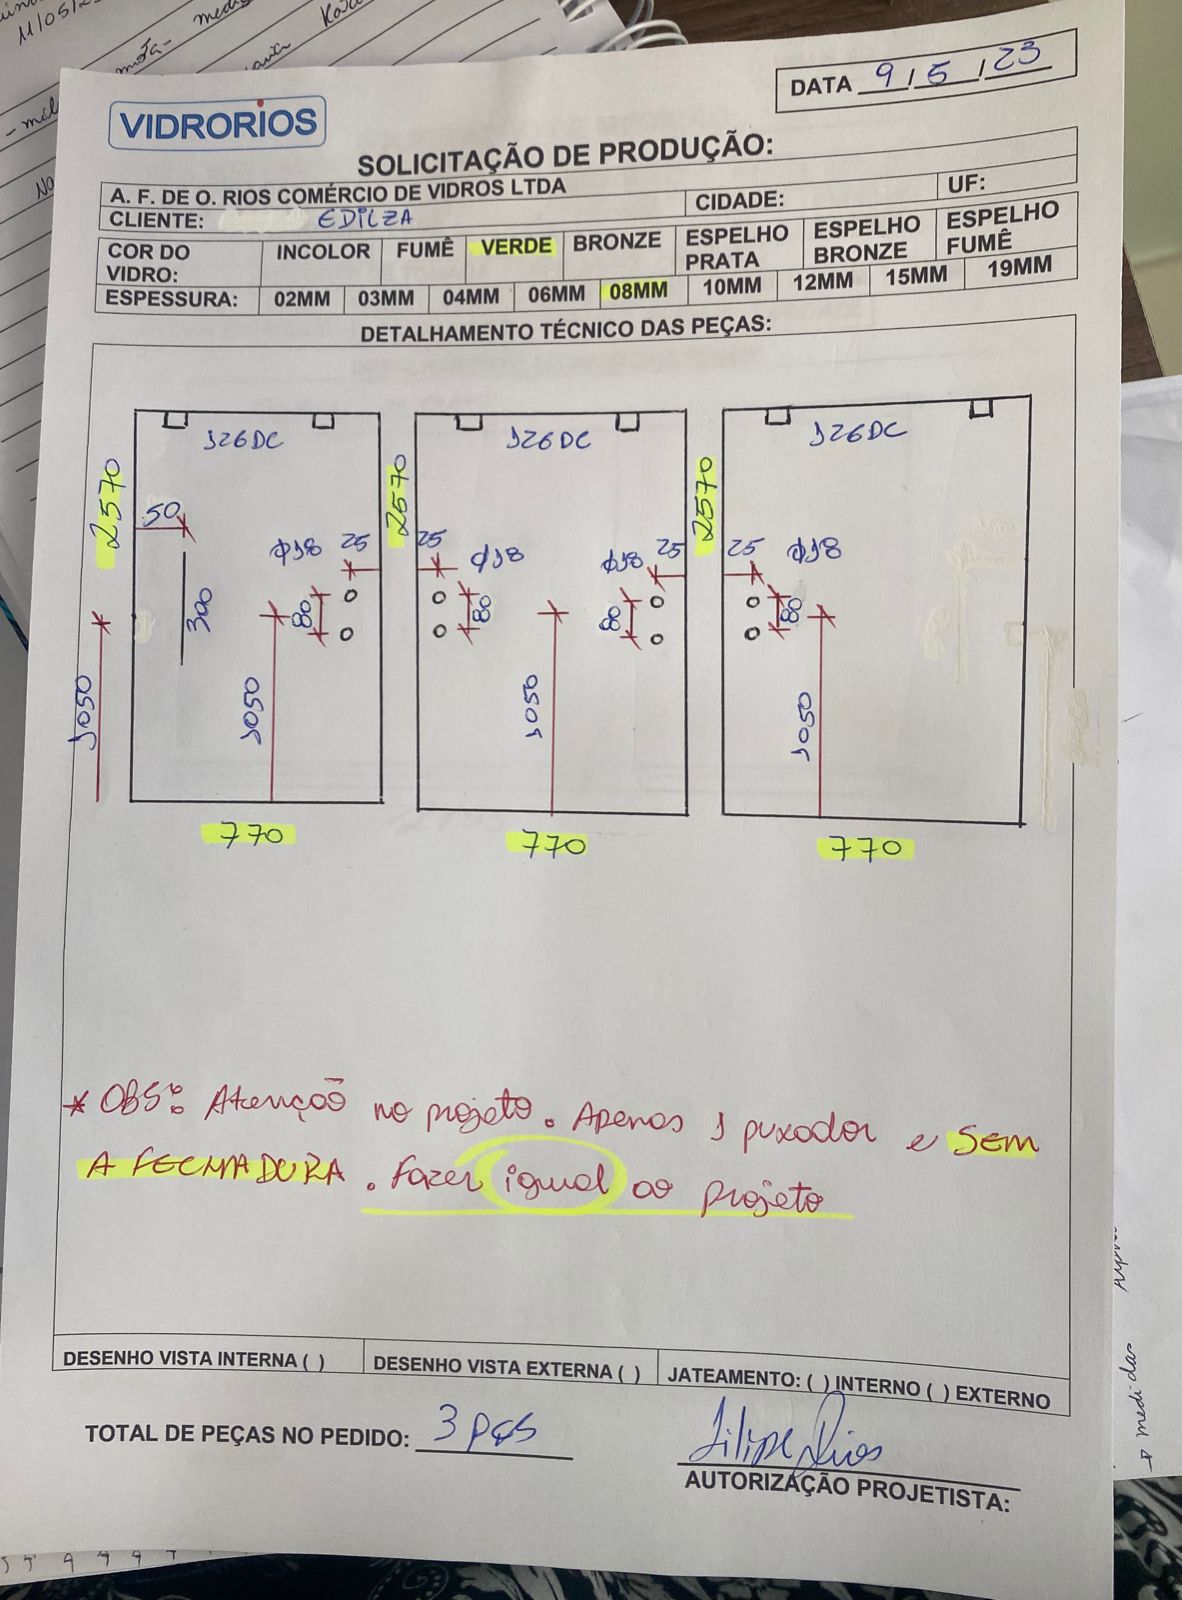 11/05/2
DATA 9 / 5 / 23
VIDRORIOS
SOLICITAÇÃO DE PRODUÇÃO:
A. F. DE O. RIOS COMÉRCIO DE VIDROS LTDA
CIDADE:
UF:
CLIENTE: EDILZA
COR DO VIDRO: INCOLOR FUMÊ VERDE BRONZE ESPELHO PRATA ESPELHO BRONZE ESPELHO FUMÊ
ESPESSURA: 02MM 03MM 04MM 06MM 08MM 10MM 12MM 15MM 19MM
DETALHAMENTO TÉCNICO DAS PEÇAS:
126DC 126DC 126DC
2570 2570 2570
50 ϕ18 25 25 ϕ18 ϕ18 25 25 ϕ18
300 80 80 80 80
1050 1050 1050 1050
770 770 770
* OBS: Atenção no projeto. Apenas 1 puxador e SEM
A FECHADURA. Fazer igual ao projeto
DESENHO VISTA INTERNA ( ) DESENHO VISTA EXTERNA ( ) JATEAMENTO: ( ) INTERNO ( ) EXTERNO
TOTAL DE PEÇAS NO PEDIDO: 3 pçs
Filipe Rios
AUTORIZAÇÃO PROJETISTA:
medidas